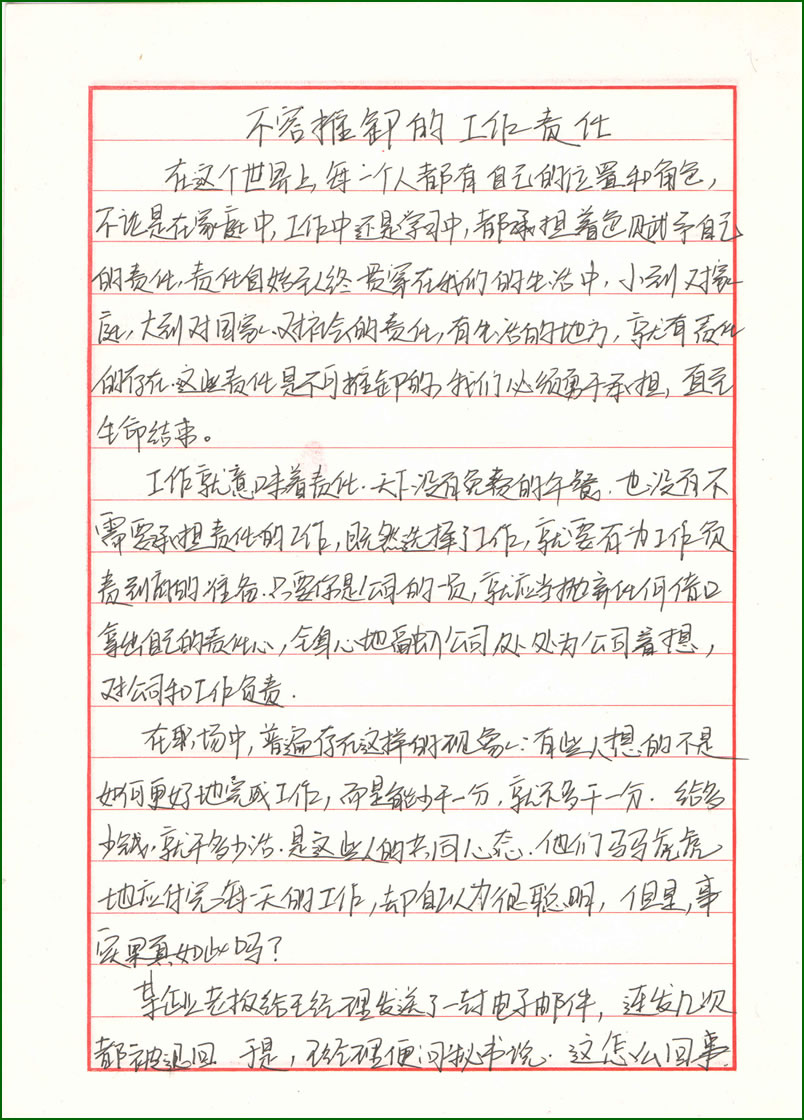 不容推卸的工作责任
在这个世界上,每一个人都有自己的位置和角色,
不论是在家庭中,工作中还是学习中,都承担着包赋予自己
的责任,责任自始至终贯穿在我们的生活中,小到对家
庭,大到对国家、对社会的责任,有生活的地方,就有责任
的存在.这些责任是不可推卸的,我们必须勇于承担,直至
生命结束。
工作就意味着责任.天下没有免费的午餐.也没有不
需要承担责任的工作,既然选择了工作,就要有为工作负
责到底的准备.只要你是公司的一员,就应当抛弃任何借口
拿出自己的责任心,全身心地融入公司,处处为公司着想,
对公司和工作负责.
在职场中,普遍存在这样的现象:有些人想的不是
如何更好地完成工作,而是能少干一分,就不多干一分.给多
少钱,就干多少活.是这些人的共同心态.他们马马虎虎
地应付完每一天的工作,却自以为很聪明,但是,事
实果真如此吗?
某企业老板给王经理发送了一封电子邮件,连发几次
都被退回.于是,王经理便问秘书说.这怎么回事.